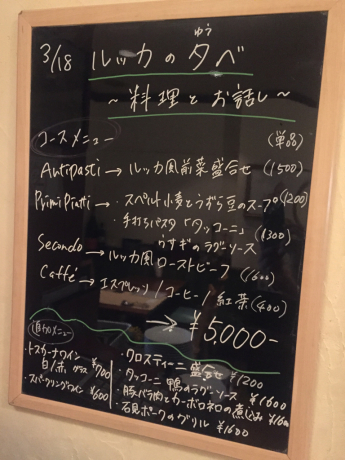 3/18 ルッカの夕べ
ゆう
～料理とお話し～
コースメニュー (単品)
Antipasti → ルッカ風前菜盛合せ (1500)
Primi Piatti → ・スペルト小麦とうずら豆のスープ (1200)
・手打ちパスタ「タッコーニ」
うさぎのラグーソース (1300)
Secondo → ルッカ風ローストビーフ (1600)
Caffé → エスプレッソ/コーヒー/紅茶 (400)
→ ¥5,000-
追加メニュー
・トスカーナワイン
白/赤 グラス ¥700
・スパークリングワイン ¥600
・クロスティーニ盛合せ ¥1200
・タッコーニ 鴨のラグーソース ¥1600
・豚バラ肉とカーボロネロの煮込み
・石見ポークのグリル ¥1600